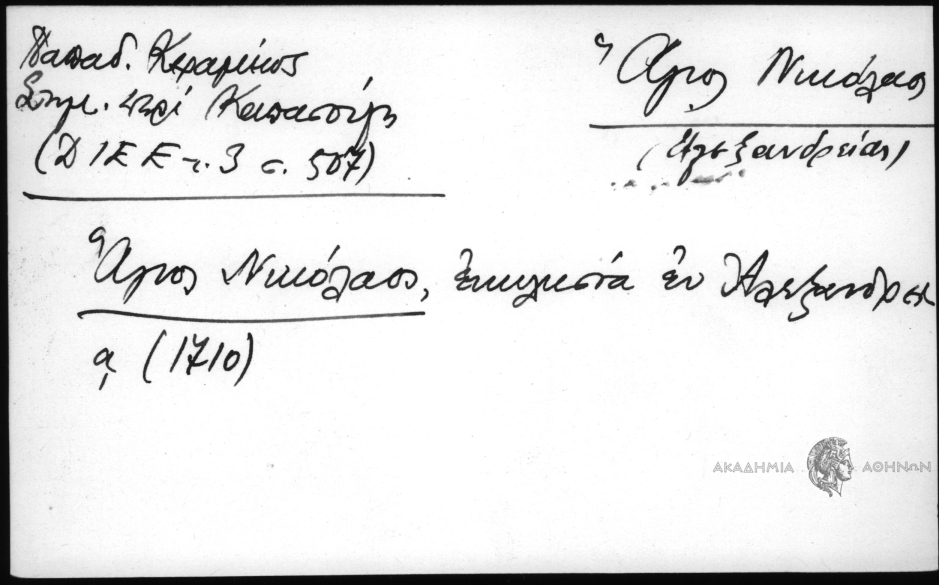 Παπαδ. Κεραμεύς
Σημ. περί Καπασούλη
(ΔΙΕΕ τ. 3 σ. 507)
Ἅγιος Νικόλαος
(Αλεξανδρείας)
Ἅγιος Νικόλαος, ἐκκλησία ἐν Ἀλεξανδρεί
ᾳ (1710)
ΑΚΑΔΗΜΙΑ ΑΘΗΝΩΝ